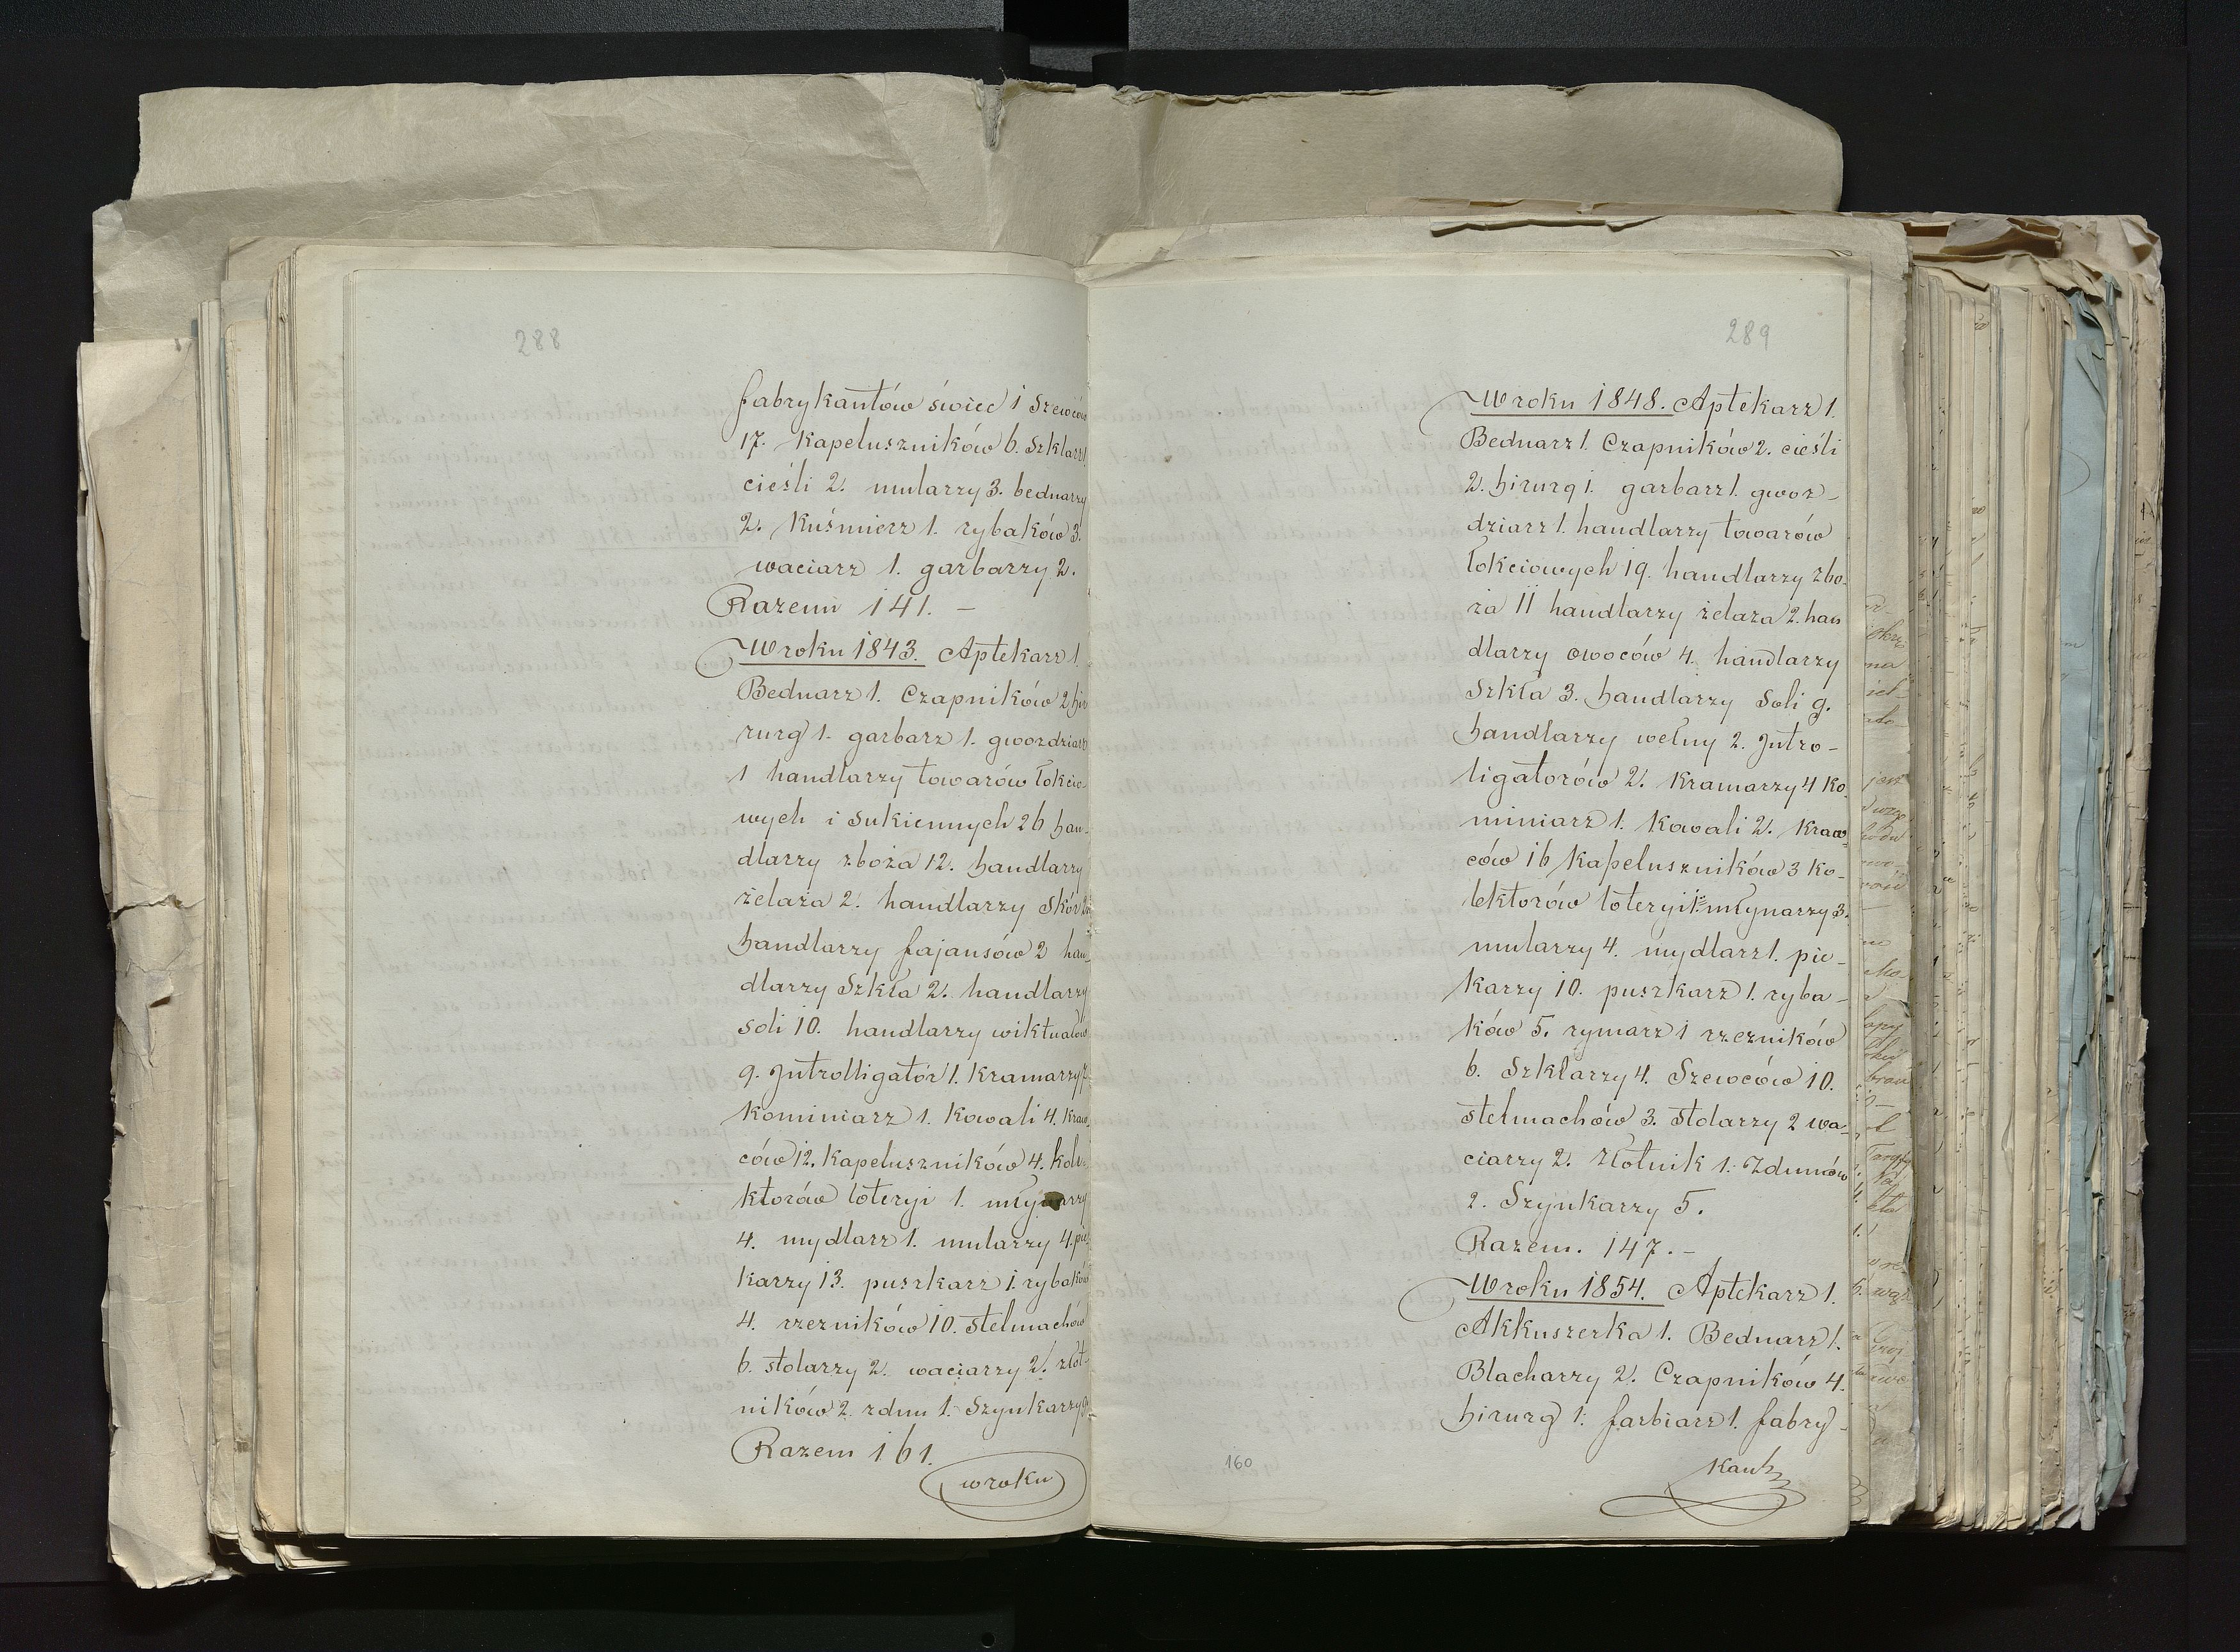 288
fabrykantów świec 1 Szewców
17. Kapeluszników 6. Szklarz 1.
cieśli 2. mularzy 3. bednarzy
2. Kuśmierz 1. rybaków 3.
waciarz 1. garbarzy 2.
Razem 141. –
W roku 1843. Aptekarz 1.
Bednarz 1. Czapników 2 hi-
rurg 1. garbarz 1. gwozdziarz
1 handlarzy towarów łokcio-
wych i Sukiennych 26 han-
dlarzy zboża 12. handlarzy
żelaza 2. handlarzy Skór
handlarzy fajansów 2 han-
dlarzy Szkła 2. handlarzy
Soli 10. handlarzy wiktuałów
9. Jntrolligator 1. Kramarzy
Kominiarz 1. Kowali 4. Kraw-
ców 12. Kapeluszników 4. kole-
ktorów loteryi 1. młynarzy
4. mydlarz 1. mularzy 4. pie-
karzy 13. puszkarz 1. rybaków
4. rzezników 10. Stelmachów
6. stolarzy 2. waciarzy 2. złot-
ników 2. zdun 1. Szynkarzy
Razem 161.
w roku
289
W roku 1848. Aptekarz 1.
Bednarz 1. Czapników 2. cieśli
2. hirurg 1. garbarz 1. gwoz-
dziarz 1. handlarzy towarów
łokciowych 19. handlarzy zbo-
ża 11 handlarzy żelaza 2. han
dlarzy owoców 4. handlarzy
Szkła 3. handlarzy Soli 9.
handlarzy wełny 2. Jntro-
ligatorów 2. Kramarzy 4 Ko-
miniarz 1. Kowali 2. Kraw-
ców 16 Kapeluszników 3 Ko-
lektorów loteryi młynarzy 3.
mularzy 4. mydlarz 1. pie-
karzy 10. puszkarz 1. ryba-
ków 5. rymarz 1 rzezników
6. Szklarzy 4. Szewców 10.
Stelmachów 3. Stolarzy 2 wa-
ciarzy 2. Złotnik 1. Zdunów
2. Szynkarzy 5.
Razem. 147. –
W roku 1854. Aptekarz 1.
Akkuszerka 1. Bednarz 1.
Blacharzy 2. Czapników 4.
hirurg 1. farbiarz 1. fabry-
kant
160